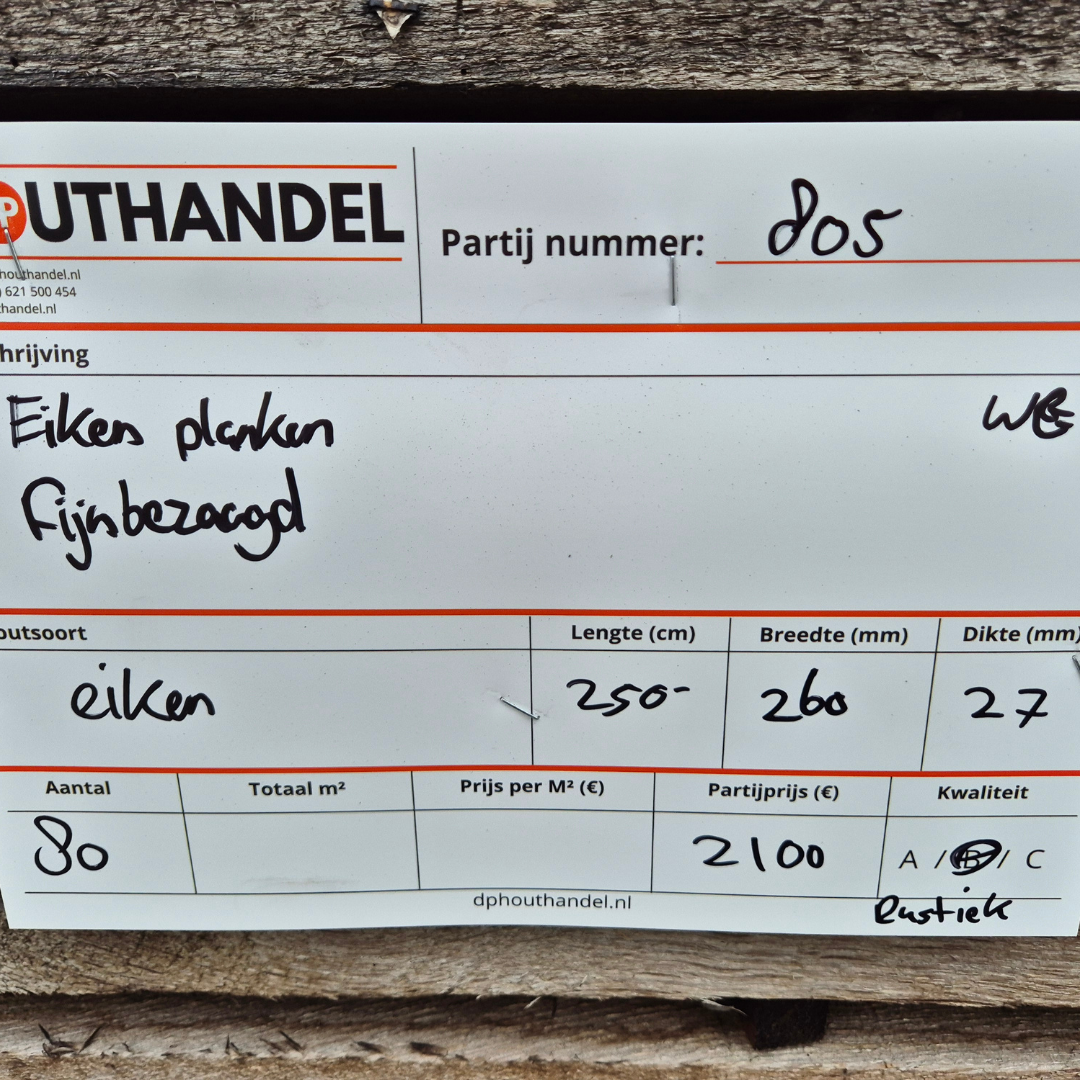 P
OUTHANDEL
Partij nummer: 805
houthandel.nl
) 621 500 454
thandel.nl
hrijving
Eiken planken
fijnbezaagd
outsoort
Lengte (cm)
Breedte (mm)
Dikte (mm)
eiken
250-
260
27
Aantal
Totaal m²
Prijs per M² (€)
Partijprijs (€)
Kwaliteit
80
2100
A / B / C
Rustiek
dphouthandel.nl